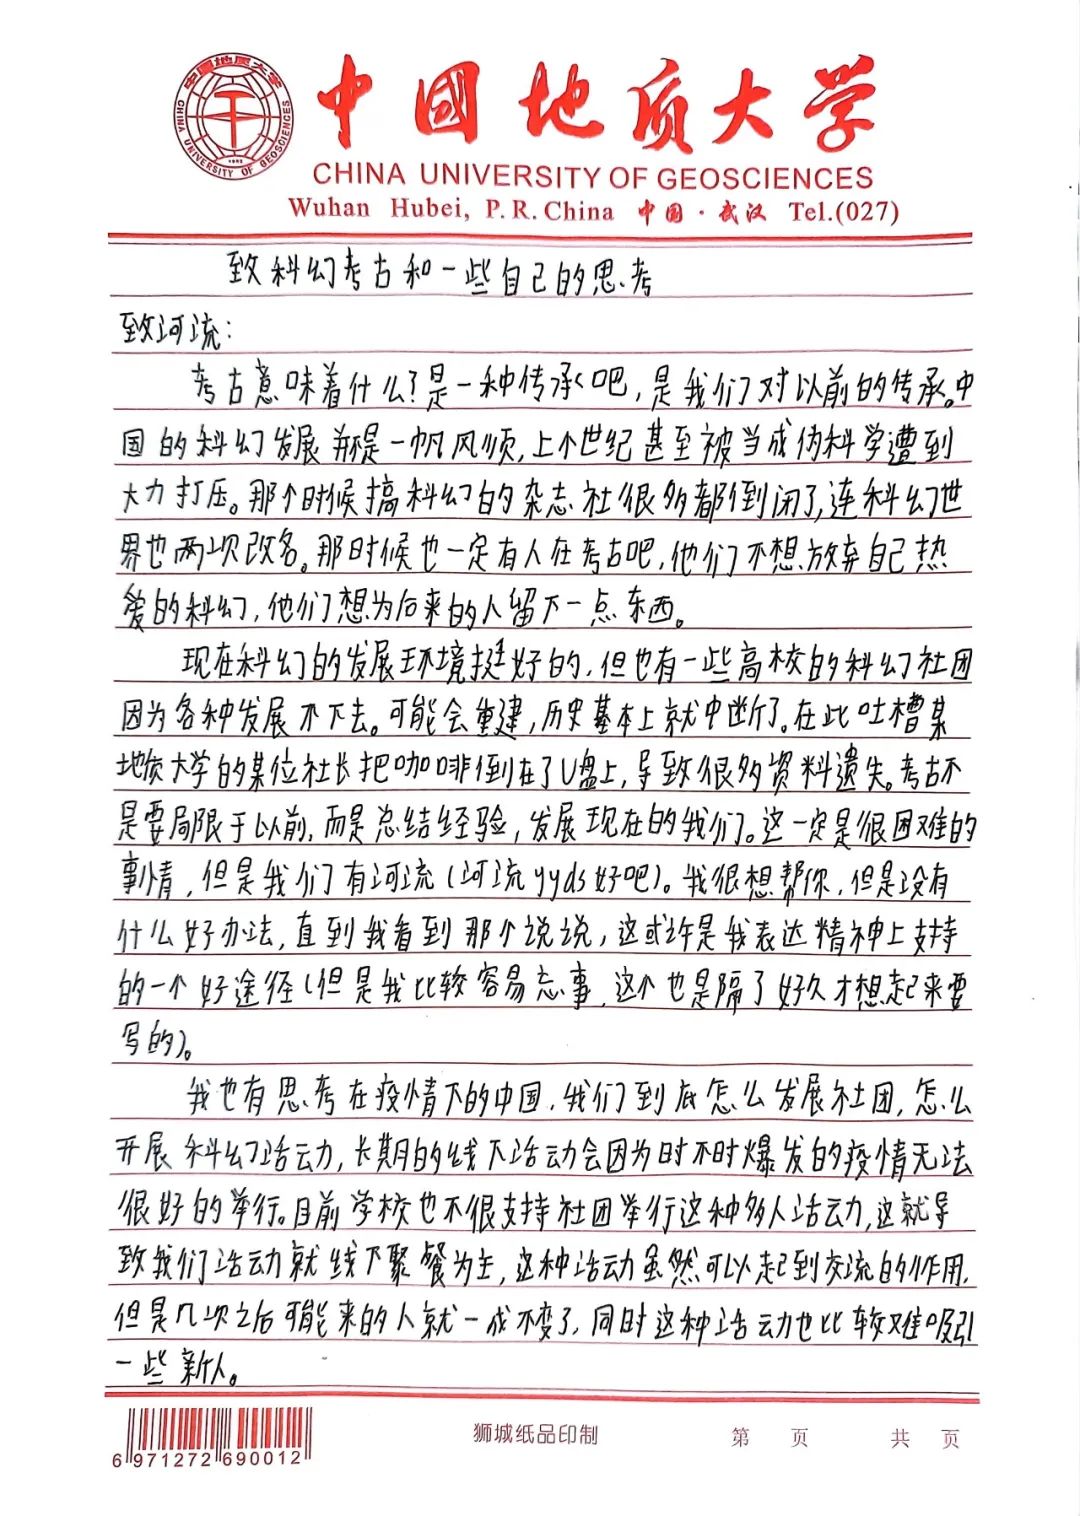 中國地质大学
CHINA UNIVERSITY OF GEOSCIENCES
Wuhan Hubei, P.R.China 中国·武汉 Tel.(027)
中国地质大学
CHINA UNIVERSITY OF GEOSCIENCES
1952
致科幻考古和一些自己的思考
致河流：
考古意味着什么？是一种传承吧，是我们对以前的传承。中
国的科幻发展并不是一帆风顺，上个世纪甚至被当成伪科学遭到
大力打压。那个时候搞科幻的杂志社很多都倒闭了，连科幻世
界也两次改名。那时候也一定有人在考古吧，他们不想放弃自己热
爱的科幻，他们想为后来的人留下一点东西。
现在科幻的发展环境挺好的，但也有一些高校的科幻社团
因为各种发展不下去。可能会重建，历史基本上就中断了。在此吐槽某
地质大学的某位社长把咖啡倒在了U盘上，导致很多资料遗失。考古不
是要局限于以前，而是总结经验，发展现在的我们。这一定是很困难的
事情，但是我们有河流（河流yyds好吧）。我很想帮你，但是没有
什么好办法，直到我看到那个说说，这或许是我表达精神上支持
的一个好途径（但是我比较容易忘事，这个也是隔了好久才想起来要
写的）。
我也有思考在疫情下的中国，我们到底怎么发展社团，怎么
开展科幻活动，长期的线下活动会因为时不时爆发的疫情无法
很好的举行。目前学校也不很支持社团举行这种多人活动，这就导
致我们活动就线下聚餐为主，这种活动虽然可以起到交流的作用，
但是几次之后可能来的人就一成不变了，同时这种活动也比较难吸引
一些新人。
6 971272 690012
狮城纸品印制
第 页 共 页